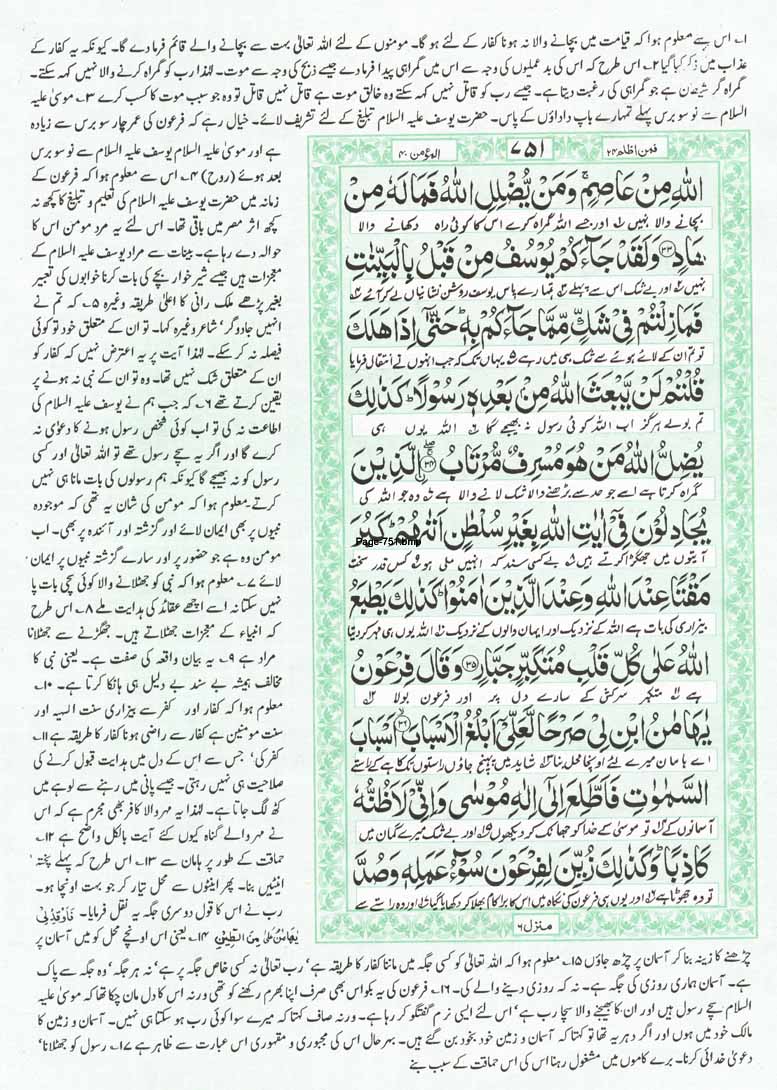 ۱؎ اس سے معلوم ہوا کہ قیامت میں بچانے والا نہ ہونا کفار کے لئے ہو گا۔ مومنوں کے لئے اللہ تعالیٰ بہت سے بچانے والے قائم فرمادے گا۔ کیونکہ یہ کفار کے
عذاب میں ذکر کیا گیا ۲؎ اس طرح کہ اس کی بد عملیوں کی وجہ سے اس میں گمراہی پیدا فرما دے جیسے ذبح کی وجہ سے موت۔ لہٰذا رب کو گمراہ کرنے والا نہیں کہہ سکتے۔
گمراہ گر شیطان ہے جو گمراہی کی رغبت دیتا ہے۔ جیسے رب کو قاتل نہیں کہہ سکتے وہ خالق موت ہے قاتل نہیں قاتل تو وہ جو سبب موت کا کسب کرے ۳؎ موسیٰ علیہ
السلام سے نو سو برس پہلے تمہارے باپ داداؤں کے پاس۔ حضرت یوسف علیہ السلام تبلیغ کے لئے تشریف لائے۔ خیال رہے کہ فرعون کی عمر چار سو برس سے زیادہ
فمن اظلم ۲۴
۷۵۱
المؤمن ۴۰
اللهِ مِنْ عَاصِمٍ ۚ وَمَنْ يُّضْلِلِ اللهُ فَمَا لَهٗ مِنْ
بچانے والا نہیں اور جسے اللہ گمراہ کرے اس کا کوئی راہ دکھانے والا
هَادٍ ﴿۳۳﴾ وَلَقَدْ جَآءَكُمْ يُوْسُفُ مِنْ قَبْلُ بِالْبَيِّنٰتِ
نہیں اور بے شک اس سے پہلے تمہارے پاس یوسف روشن نشانیاں لے کر آئے
فَمَا زِلْتُمْ فِيْ شَكٍّ مِّمَّا جَآءَكُمْ بِهٖ ؕ حَتّٰۤى اِذَا هَلَكَ
تو تم ان کے لائے ہوئے سے شک ہی میں رہے یہاں تک کہ جب انہوں نے انتقال فرمایا
قُلْتُمْ لَنْ يَّبْعَثَ اللهُ مِنْۢ بَعْدِهٖ رَسُوْلًا ؕ كَذٰلِكَ
تم بولے ہرگز اب اللہ کوئی رسول نہ بھیجے گا اللہ یوں ہی
يُضِلُّ اللهُ مَنْ هُوَ مُسْرِفٌ مُّرْتَابُ ﴿۳۴﴾ الَّذِيْنَ
گمراہ کرتا ہے اسے جو حد سے بڑھنے والا شک لانے والا ہے وہ جو اللہ کی
يُجَادِلُوْنَ فِيْۤ اٰيٰتِ اللهِ بِغَيْرِ سُلْطٰنٍ اَتٰىهُمْ ؕ كَبُرَ
Page-751.bmp
آیتوں میں جھگڑا کرتے ہیں بے کسی سند کہ انہیں ملی ہو کس قدر سخت
مَقْتًا عِنْدَ اللهِ وَعِنْدَ الَّذِيْنَ اٰمَنُوْا ؕ كَذٰلِكَ يَطْبَعُ
بیزاری کی بات ہے اللہ کے نزدیک اور ایمان والوں کے نزدیک اللہ یوں ہی مہر کردیتا
اللهُ عَلٰى كُلِّ قَلْبِ مُتَكَبِّرٍ جَبَّارٍ ﴿۳۵﴾ وَقَالَ فِرْعَوْنُ
ہے متکبر سرکش کے سارے دل پر اور فرعون بولا
يٰهَامٰنُ ابْنِ لِيْ صَرْحًا لَّعَلِّيْۤ اَبْلُغُ الْاَسْبَابَ ﴿۳۶﴾ اَسْبَابَ
اے ہامان میرے لئے اونچا محل بنا شاید میں پہنچ جاؤں راستوں تک کاہے کے راستے
السَّمٰوٰتِ فَاَطَّلِعَ اِلٰۤى اِلٰهِ مُوْسٰى وَاِنِّيْ لَاَظُنُّهٗ
آسمانوں کے تو موسیٰ کے خدا کو جھانک کر دیکھوں اور بے شک میرے گمان میں
كَاذِبًا ؕ وَكَذٰلِكَ زُيِّنَ لِفِرْعَوْنَ سُوْٓءُ عَمَلِهٖ وَصُدَّ
تو وہ جھوٹا ہے اور یوں ہی فرعون کی نگاہ میں اس کا برا کام بھلا کر دکھایا گیا اور وہ راستے سے
منزل ۶
ہے اور موسیٰ علیہ السلام یوسف علیہ السلام سے نو سو برس
بعد ہوئے (روح) ۴؎ اس سے معلوم ہوا کہ فرعون کے
زمانہ میں حضرت یوسف علیہ السلام کی تعلیم و تبلیغ کا کچھ نہ
کچھ اثر مصر میں باقی تھا۔ اس لئے یہ مرد مومن اس کا
حوالہ دے رہا ہے۔ بینات سے مراد یوسف علیہ السلام کے
معجزات ہیں جیسے شیر خوار بچے کی بات کرنا خوابوں کی تعبیر
بغیر پڑھے ملک رانی کا اعلیٰ طریقہ وغیرہ ۵؎ کہ تم نے
انہیں جادوگر، شاعر وغیرہ کہا۔ تو ان کے متعلق خود تو کوئی
فیصلہ نہ کر سکے۔ لہٰذا آیت پر یہ اعتراض نہیں کہ کفار کو
ان کے متعلق شک نہیں تھا۔ وہ تو ان کے نبی نہ ہونے پر
یقین کرتے تھے ۶؎ کہ جب ہم نے یوسف علیہ السلام کی
اطاعت نہ کی تو اب کوئی شخص رسول ہونے کا دعویٰ نہ
کرے گا اور اگر یہ سچے رسول تھے تو اللہ تعالیٰ اور کسی
رسول کو نہ بھیجے گا کیونکہ ہم رسولوں کی بات مانا ہی نہیں
کرتے۔ معلوم ہوا کہ مومن کی شان یہ تھی کہ موجودہ
نبیوں پر بھی ایمان لائے اور گزشتہ اور آئندہ پر بھی۔ اب
مومن وہ ہے جو حضور پر اور سارے گزشتہ نبیوں پر ایمان
لائے ۷؎ معلوم ہوا کہ نبی کو جھٹلانے والا کوئی سچی بات پا
نہیں سکتا نہ اسے اچھے عقائد کی ہدایت ملے ۸؎ اس طرح
کہ انبیاء کے معجزات جھٹلاتے ہیں۔ جھگڑنے سے جھٹلانا
مراد ہے ۹؎ یہ بیان واقعہ کی صفت ہے۔ یعنی نبی کا
مخالف ہمیشہ بے سند بے دلیل ہی ہانکا کرتا ہے۔ ۱۰؎
معلوم ہوا کہ کفار اور کفر سے بیزاری سنت الہیہ اور
سنت مومنین ہے کفار سے راضی ہونا کفار کا طریقہ ہے ۱۱؎
کفر کی، جس سے اس کے دل میں ہدایت قبول کرنے کی
صلاحیت ہی نہیں رہتی۔ جیسے پانی میں رہنے سے لوہے میں
لگ جاتا ہے۔ لہٰذا یہ مہر والا کافر بھی مجرم ہے کہ اس
نے مہر والے گناہ کیوں کئے آیت بالکل واضح ہے ۱۲؎
حماقت کے طور پر ہامان سے ۱۳؎ اس طرح کہ پہلے پختہ
اینٹیں بنا۔ پھر اینٹوں سے محل تیار کر جو بہت اونچا ہو۔
رب نے اس کا قول دوسری جگہ یہ نقل فرمایا۔ فَاَوْقِدْ لِيْ
يٰهَامٰنُ عَلَى الطِّيْنِ ۱۴؎ یعنی اس اونچے محل کو میں آسمان پر
چڑھنے کا زینہ بنا کر آسمان پر چڑھ جاؤں ۱۵؎ معلوم ہوا کہ اللہ تعالیٰ کو کسی جگہ میں ماننا کفار کا طریقہ ہے، رب تعالیٰ نہ کسی خاص جگہ پر ہے، نہ ہر جگہ، وہ جگہ سے پاک
ہے۔ آسمان ہماری روزی کی جگہ ہے۔ نہ کہ روزی دینے والے کی۔ ۱۶؎ فرعون کی یہ بکواس بھی صرف اپنا بھرم رکھنے کو تھی ورنہ اس کا دل مان چکا تھا کہ موسیٰ علیہ
السلام سچے رسول ہیں اور ان کا بھیجنے والا سچا رب ہے، اس لئے ایسی نرم گفتگو کر رہا ہے۔ ورنہ صاف کہتا کہ میرے سوا کوئی رب ہو سکتا ہی نہیں۔ آسمان و زمین کا
مالک خود میں ہوں اور اگر دہریہ تھا تو کہتا کہ آسمان و زمین خود بخود بن گئے ہیں۔ بہرحال اس کی مجبوری و مقہوری اس عبارت سے ظاہر ہے ۱۷؎ رسول کو جھٹلانا،
دعویٰ خدائی کرنا۔ برے کاموں میں مشغول رہنا اس کی اس حماقت کے سبب بنے